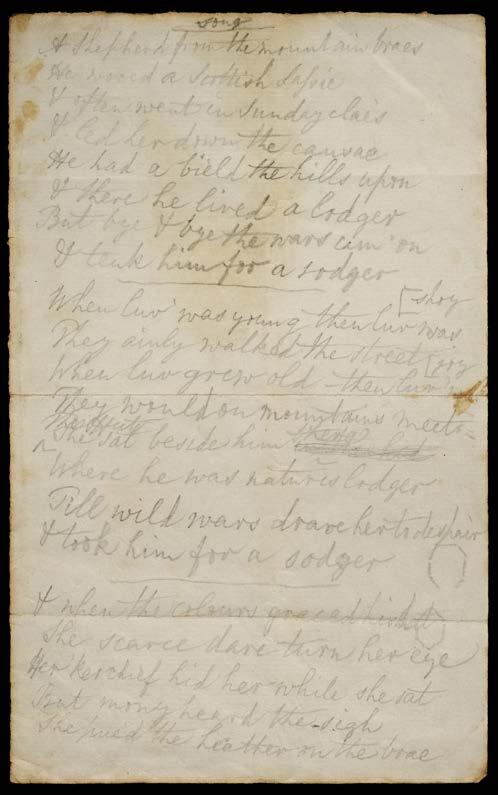 Song
A Shepherd from the mountain braes
He wooed a Scottish Lassie
& often went in Sunday claes
& led her down the causae
He had a bield the hills upon
& there he lived a lodger
But bye & bye the wars cum' on
& teuk him for a sodger
When luv' was young then luv was [shoy
They ainly walked the street [joy
When luv grew old then luv
They would on mountains meet
She sat beside him there
Where he was natures lodger
Till wild wars drave her to despair
& took him for a sodger
& when the colours graced his hat
She scarce dare turn her eye
Her kerchief hid her while she sat
But mony heard the sigh
She pued the heather on the brae